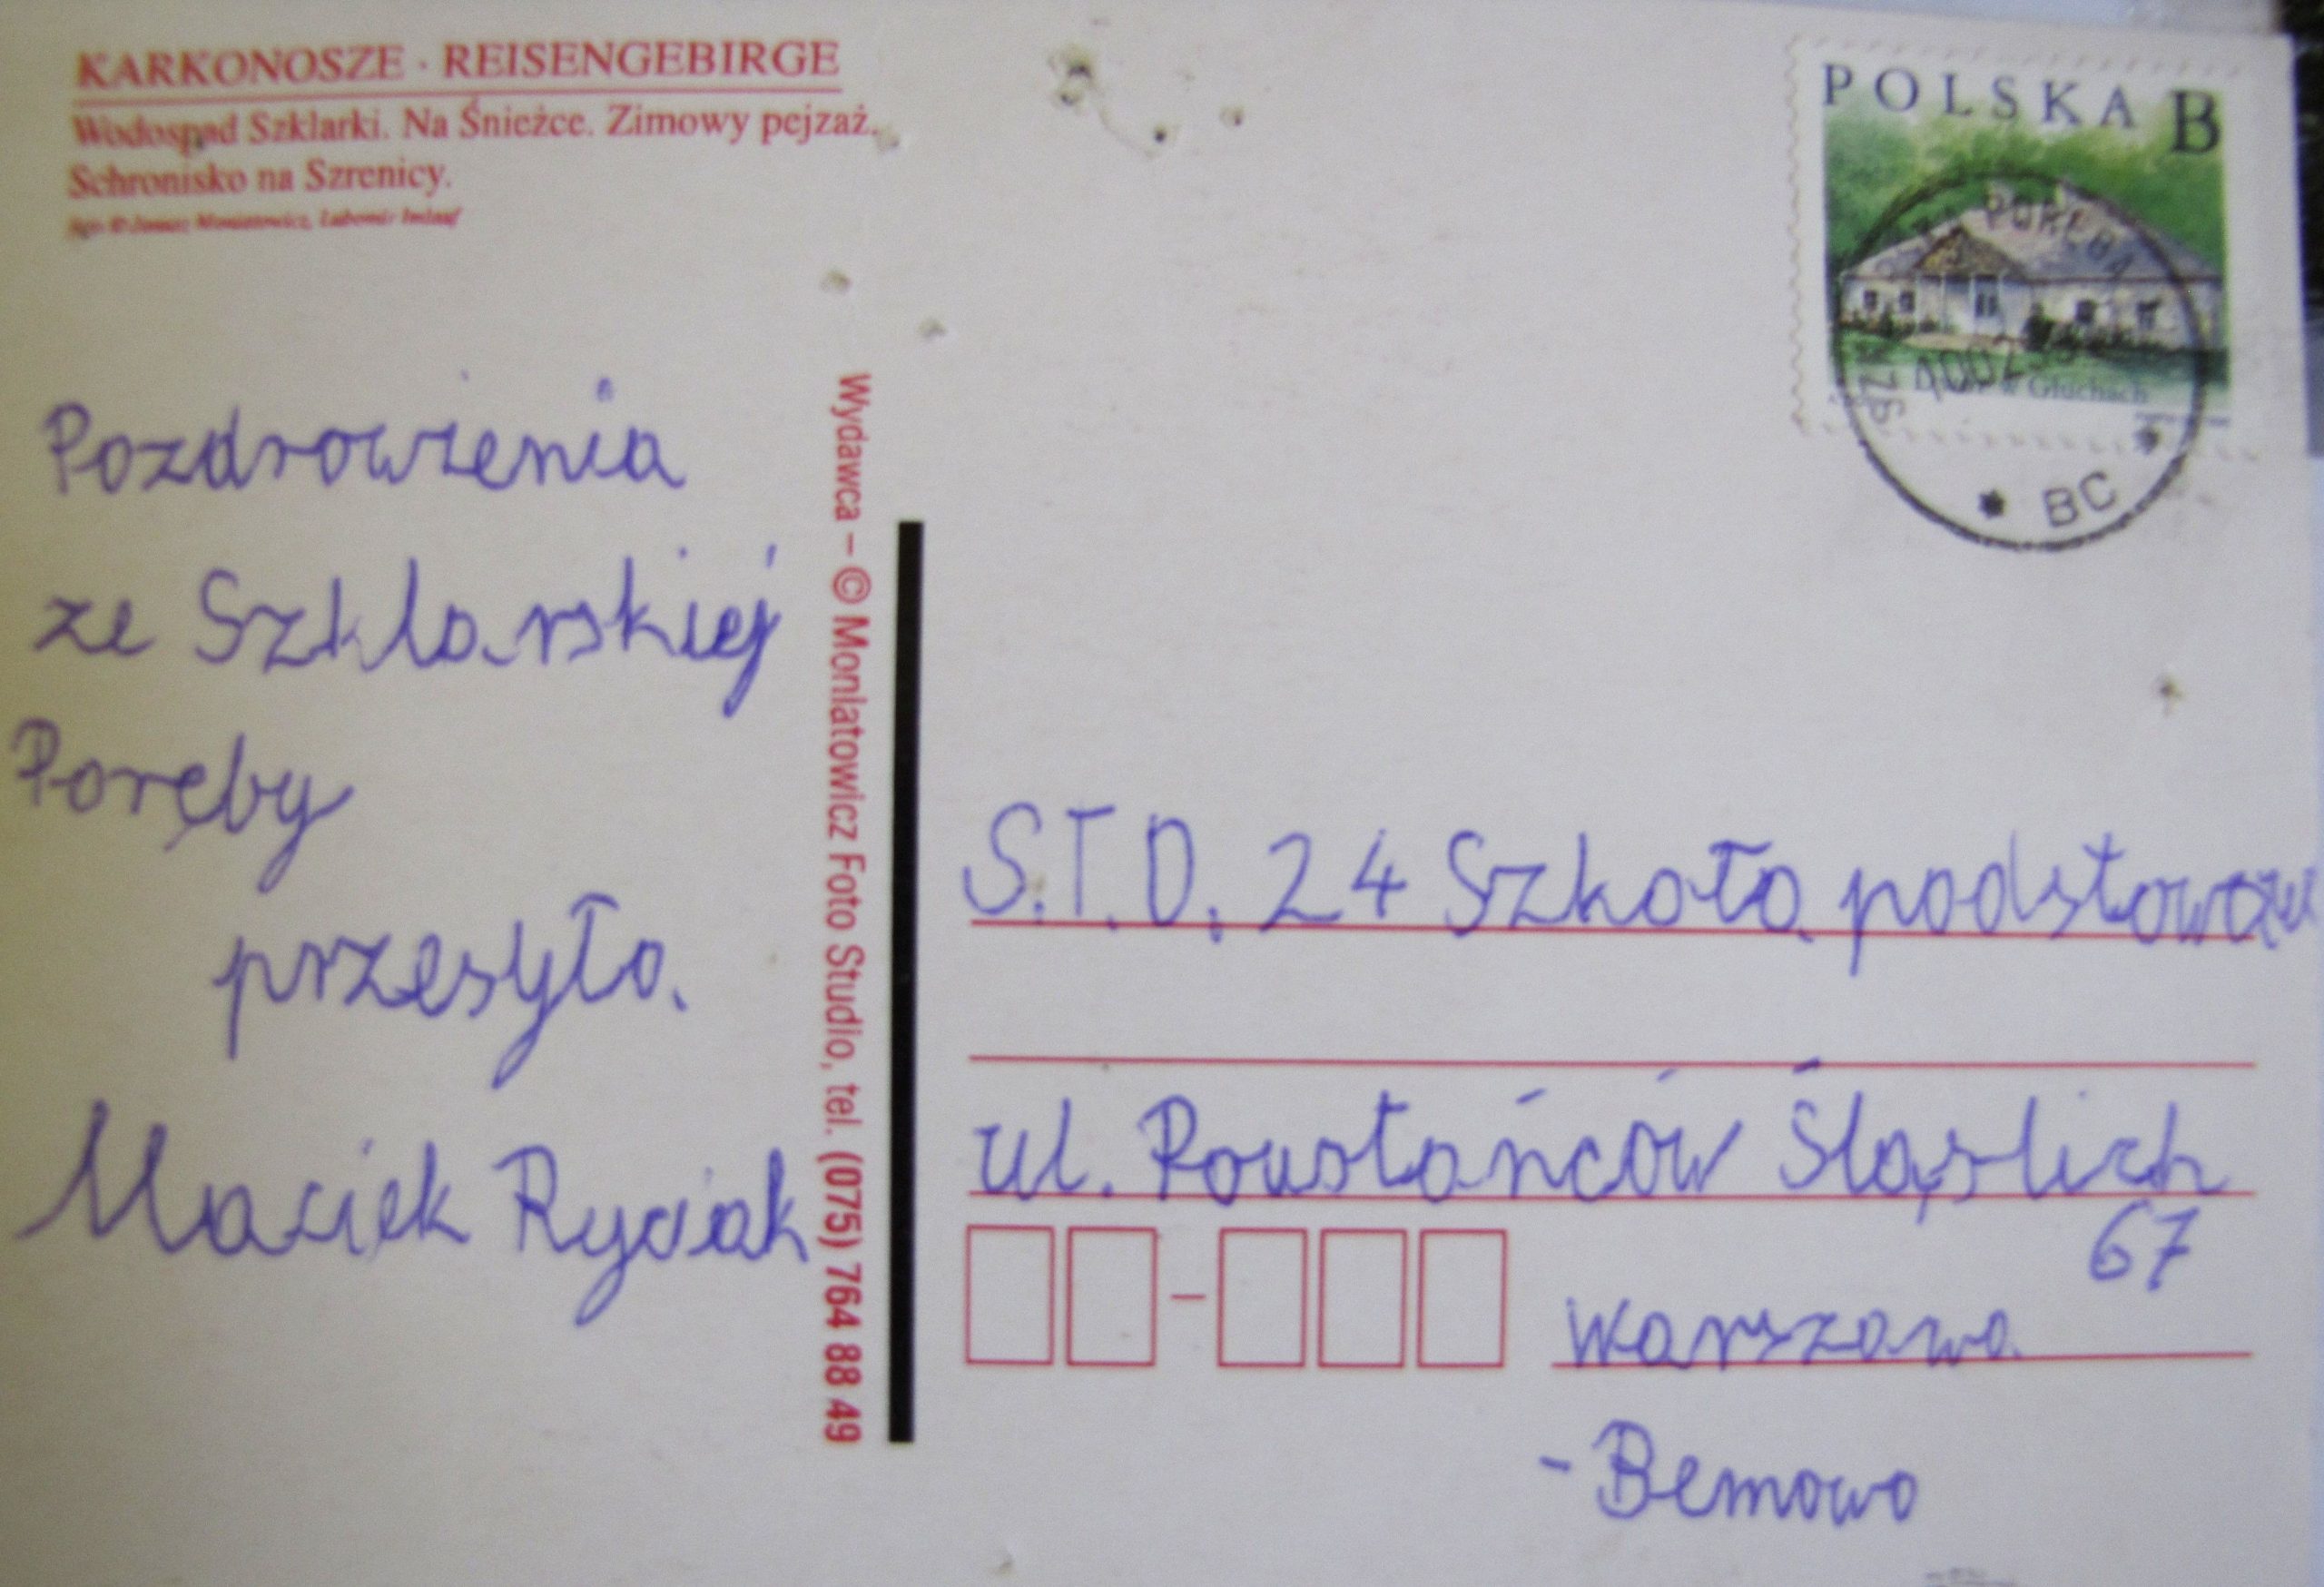 KARKONOSZE · REISENGEBIRGE
Wodospad Szklarki. Na Śnieżce. Zimowy pejzaż.
Schronisko na Szrenicy.
Pozdrowienia
ze Szklarskiej
Poręby
przesyła
Maciek Ryciak
Wydawca – © Moniatowicz Foto Studio, tel. (075) 764 88 49
POLSKA B
PORĘBA
BC
S.T.D. 24 Szkoła podstawow
ul. Powstańców Śląslich
67
Warszawa
- Bemowo